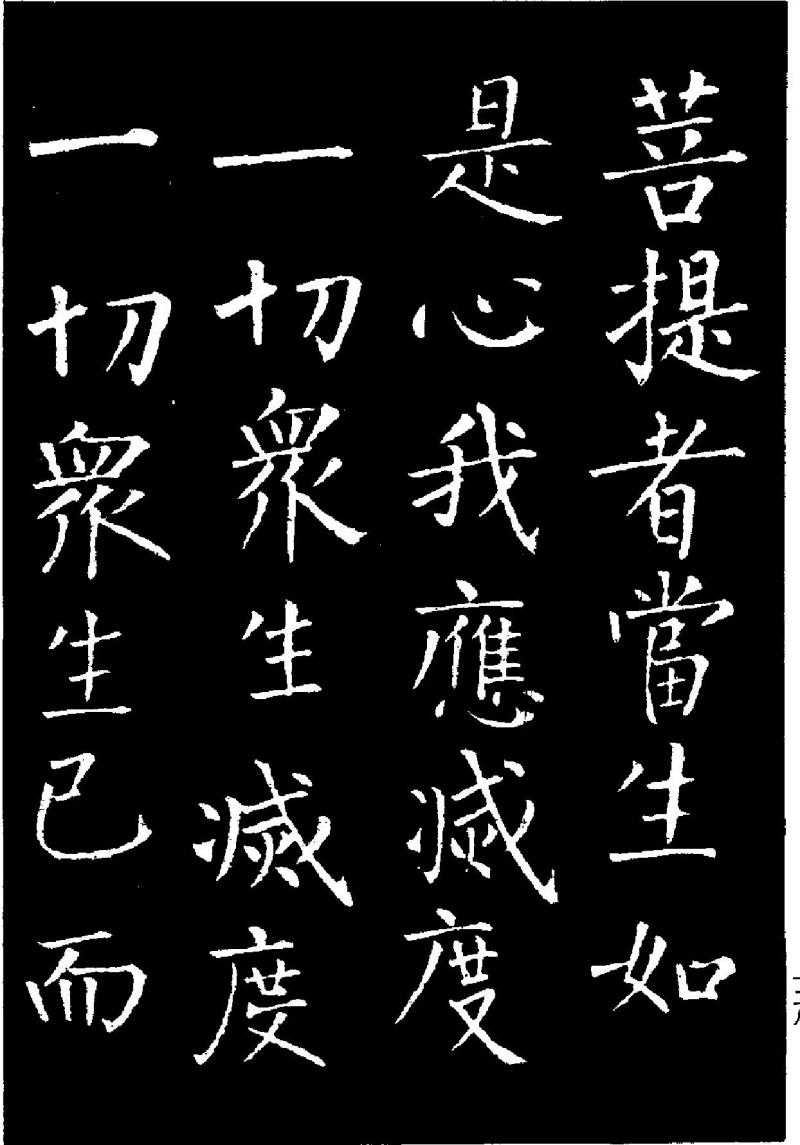 菩提者當生如
是心我應滅度
一切衆生滅度
一切衆生已而